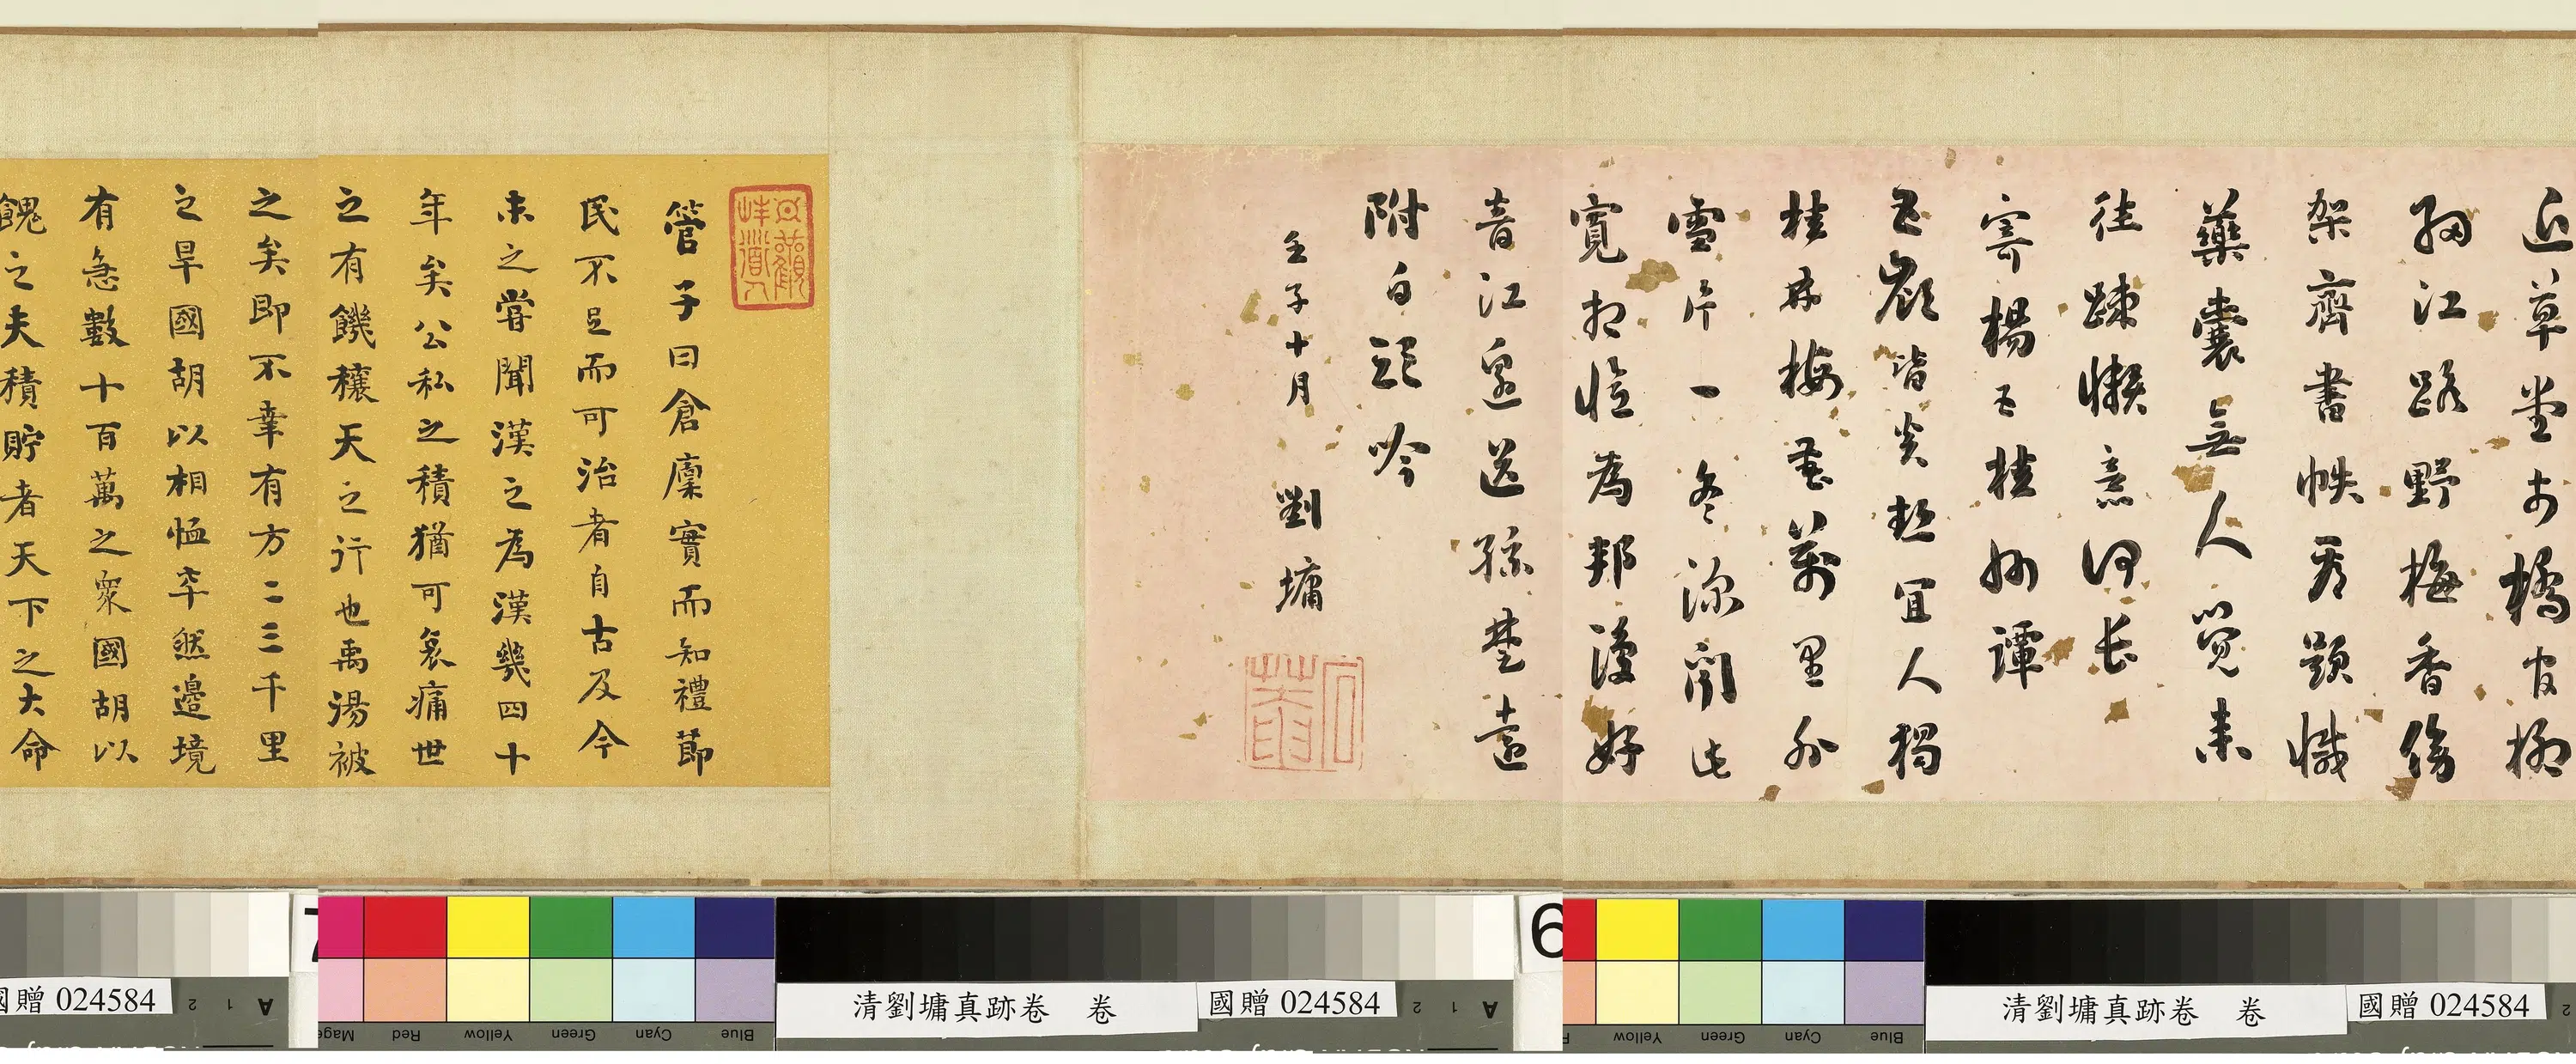 近草堂市橋官柳
細江路野梅香傍
架齊書帙看題檢
藥囊無人覺來
往疎懶意何長
寄楊五桂州譚
五嶺皆炎熱宜人獨
桂林梅花萬里外
雪片一冬深聞此
寬相憶為邦復好
音江邊送孫楚遠
附白頭吟
壬子十月 劉墉
石菴
管子曰倉廩實而知禮節
民不足而可治者自古及今
未之嘗聞漢之為漢幾四十
年矣公私之積猶可哀痛世
之有饑穰天之行也禹湯被
之矣即不幸有方二三千里
之旱國胡以相恤卒然邊境
有急數十百萬之衆國胡以
餽之夫積貯者天下之大命
國贈 024584 2 1 A
Magenta Red Yellow Green Cyan Blue
清劉墉真跡卷 卷
國贈 024584 2 1 A
6
Yellow Green Cyan Blue
清劉墉真跡卷 卷
國贈 024584 2